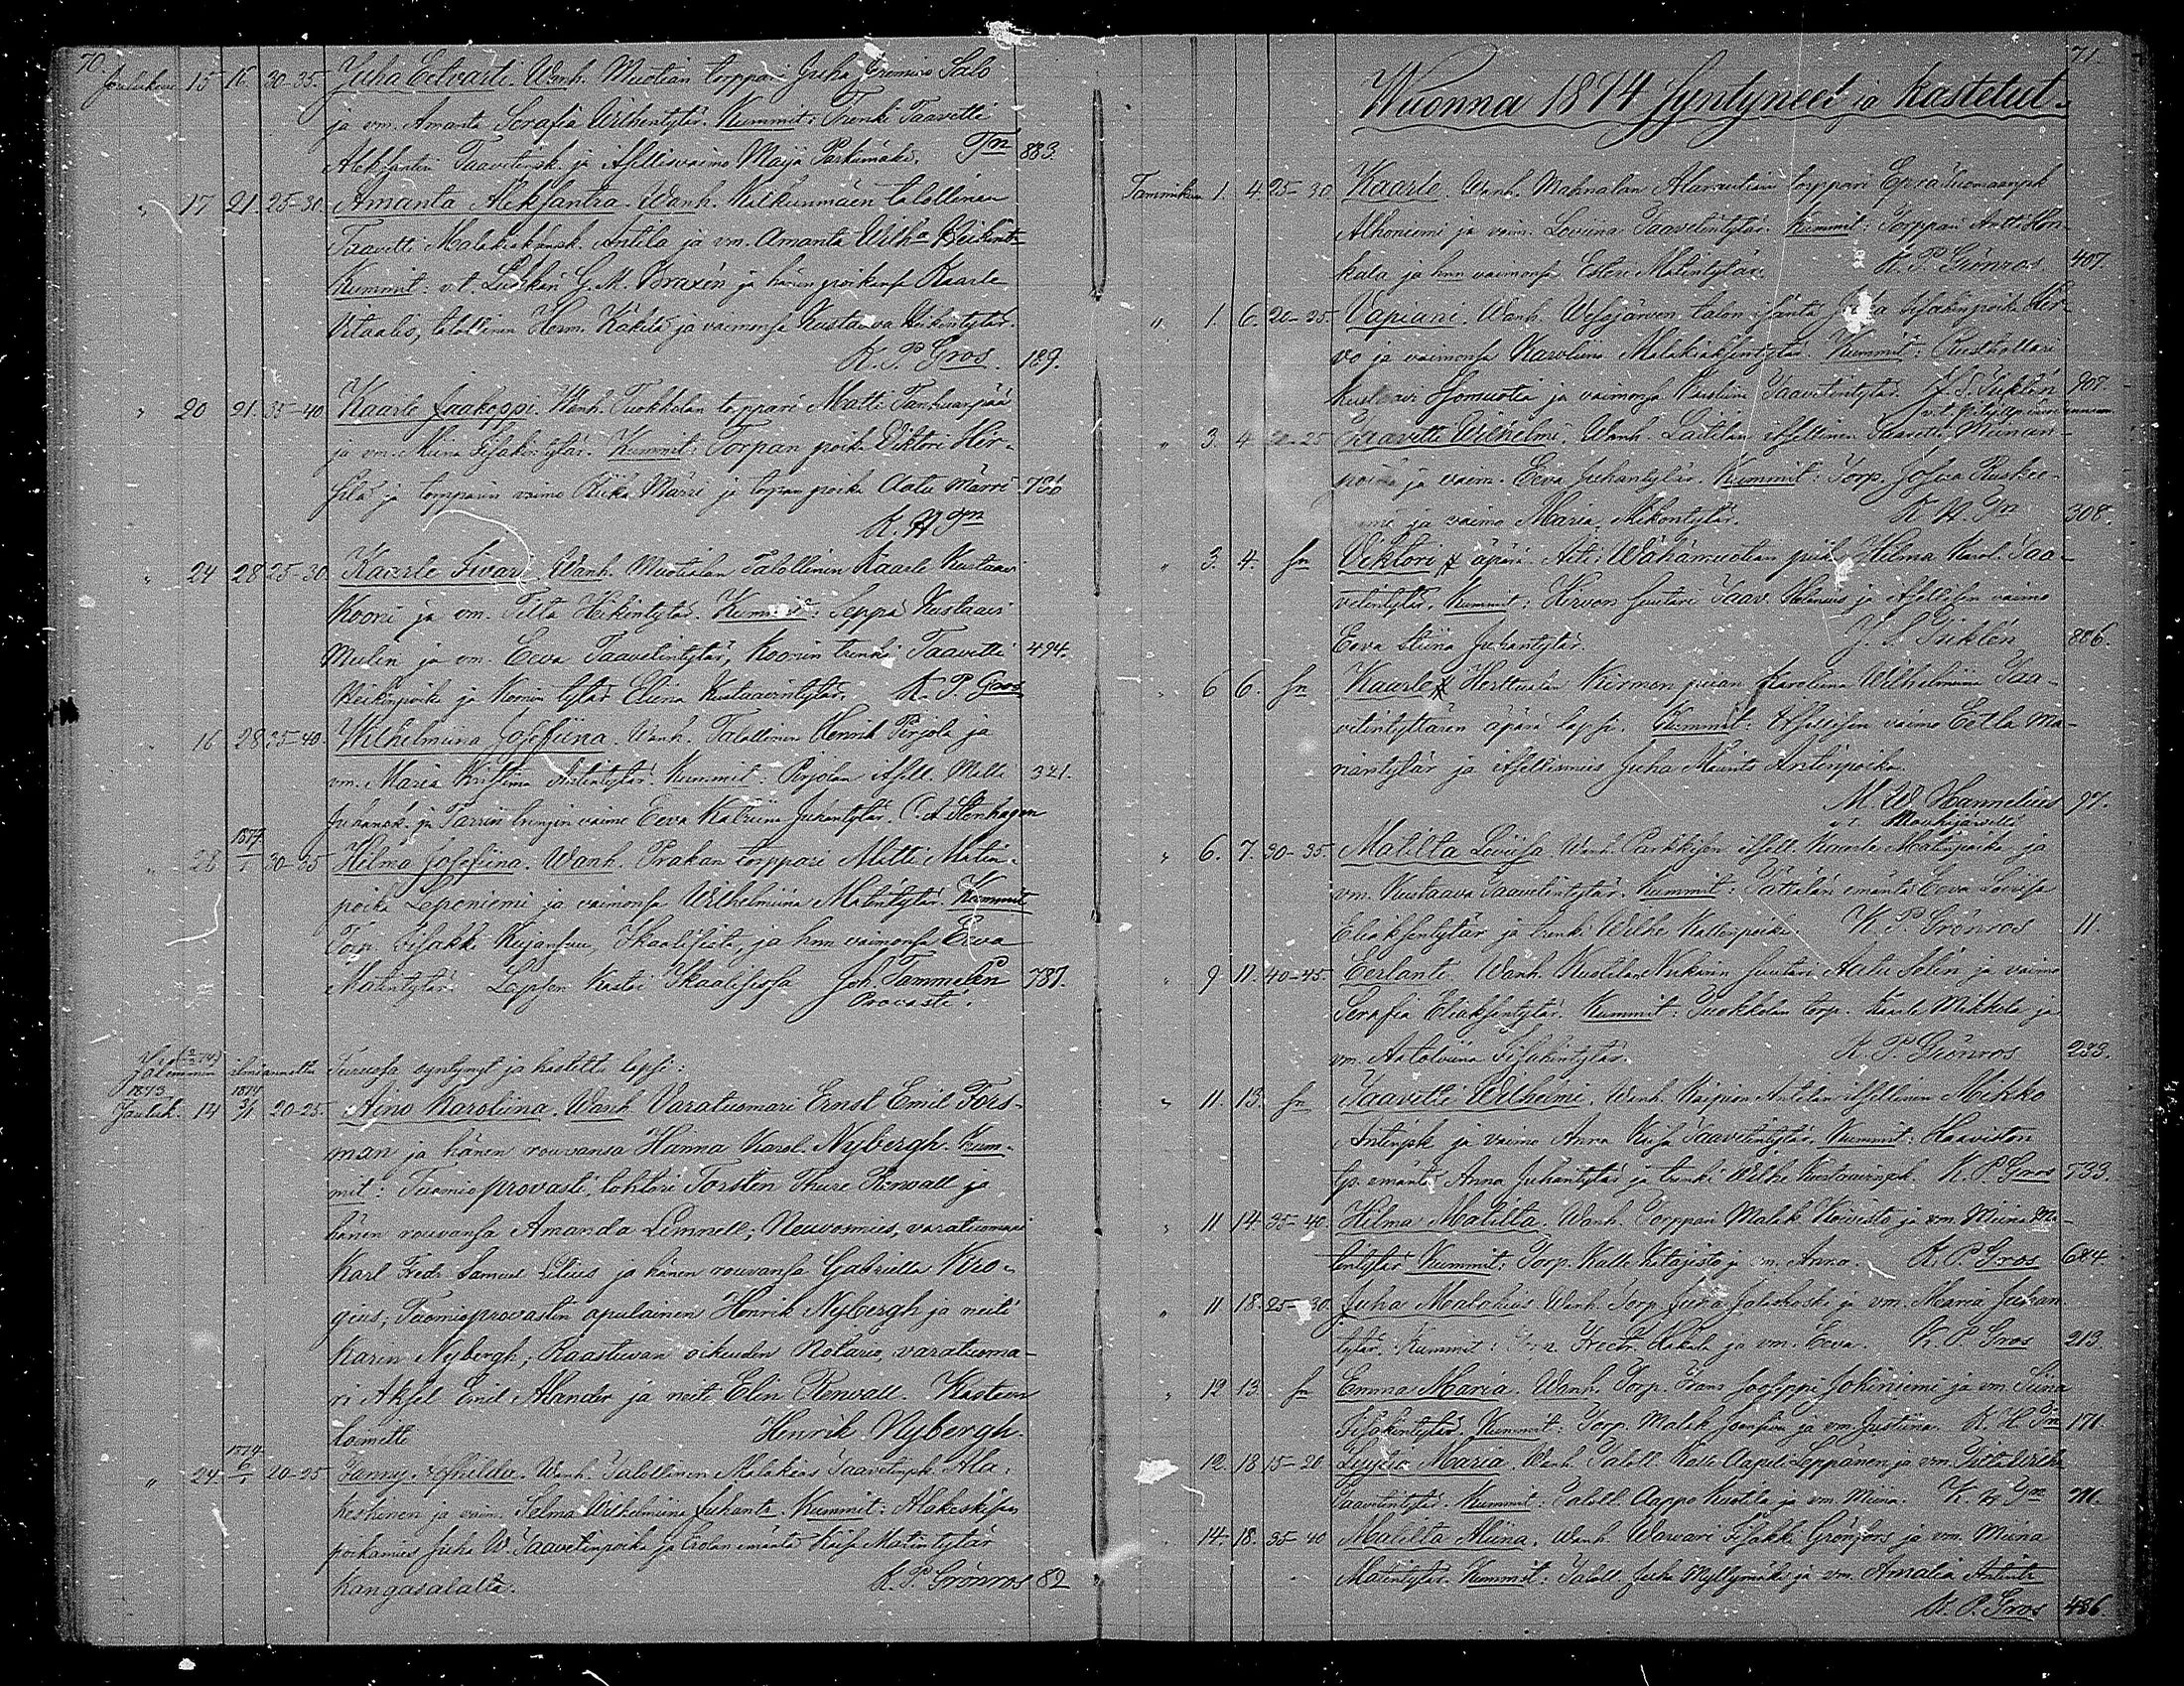 70.
Joulukuu 15 16. 30-35. Juha Eetvarti. Wanh. Muotian torppari Juha Jeremias Salo
ja vm. Amanta Serafia Wilhentytär. Kummit: Trenki Taavetti
Aleksanteri Taavetinpk. ja itsellisvaimo Maija Parkimäki. 883.
" 17 21. 25-30. Amanta Aleksantra. Wanh. talollinen
Taavetti Malakiaksenpk. Antila ja vm. Amanta Wilh:a Heikint:
Kummit: v.t. G. M. Braxén ja hänen poikansa Kaarle
Vitaalis, talollinen Herm. ja vaimonsa Kustaava Heikintytär.
K. P. Gros. 189.
" 20 21. 35-40 Kaarle Jaakoppi. Wanh. Tuokkolan torppari Matti Tankuanpää
ja vm. Miina Iisakintytär. Kummit: Torpan poika Viktori Hir-
silä ja torpparin vaimo Riika Märri ja torpan poika Aatu Märri 736
K. H.
" 24 28 25-30 Kaarle Iivari. Wanh. Muotialan Talollinen Kaarle Kustaa
Koori ja vm. Tilta Heikintytär. Kummit: Seppä Kustaavi
Melin ja vm. Eeva Taavetintytär, Koorin trenki Taavetti 494.
Heikinpoika ja Koorin tytär Elina Kustaavintytär. K. P. Gros
" 16 28 35-40. Wilhelmiina Josefiina. Wanh. Talollinen Henrik Perjola ja
vm. Maria Kristiina Antintytär. Kummit: Perjolan itsell. Matti 321.
Juhanpk. ja Tarrin vaimo Eeva Katriina Juhantytär. C. A. Stenhagen
1874
" 28 30-35 Hilma Josefiina. Wanh. Prakan torppari Matti Matin-
poika Leponiemi ja vaimonsa Wilhelmiina Matintytär. Kummit
Torp. Iisakki Kujansuu, Ikaalisista, ja hnn vaimonsa Eeva
Matintytär. Lapsen kastoi Ikaalisissa Joh. Tammelin 787.
Provasti.
Jälemmin ilmiannettu Turussa syntynyt ja kastettu lapsi:
1873 1874
Jouluk. 14 3/1 20-25. Aino Karoliina. Wanh. Varatuomari Ernst Emil Fors-
man ja hänen rouvansa Hanna Karol. Nybergh. Kum-
mit: Tuomioprovasti, tohtori Torsten Thure Renvall ja
hänen rouvansa Amanda Limnell; Neuvosmies, varatuomari
Karl Fredr. Samuel Lilius ja hänen rouvansa Gabriella Kro-
gius; Tuomioprovastin apulainen Henrik Nybergh ja neiti
Karin Nybergh; Raastuvan oikeuden Notario, varatuoma-
ri Aksel Emil Alander ja neiti Elin Renvall. Kasteen
toimitti Henrik Nybergh.
1874
" 24 6/1 20-25 Fanny Wanh. Talollinen Malakias Taavetinpk. Ala-
keskinen ja vaim. Selma Wilhelmiina Juhant:. Kummit: Alakeskisen
poikamies Juha W. Taavetinpoika ja emäntä Kaisa Matintytär
Kangasalalta. K. P. Grönros 82
71.
Wuonna 1874 Syntyneet ja kastetut.
Tammikuu 1. 4. 25-30 Kaarle. Wanh. Mahnalan Alamutian torppari Tuomaanpk
Alhoniemi ja vaim. Loviina Taavetintytär. Kummit: Torppari Antti Hon-
kala ja hnn vaimonsa Esteri Matintytär. K. P. Grönros 407.
" 1. 6. 20-25. Vapiani. Wanh. Wesajärven talon isäntä Juha Iisakinpoika Hir-
vo ja vaimonsa Karoliina Malakiaksentytär. Kummit: Rusthollari
Kustaavi Isomuotia ja vaimonsa Karoliina Taavetintytär. 907.
" 3. 4 20-25 Taavetti Wilhelmi. Wanh. Laitilan itsellinen Taavetti
poika ja vaim. Eeva Juhantytär. Kummit: Torp. Joosua Ruskee-
mi ja vaimo Maria Mikontytär. K. H. 308.
" 3. 4. Viktori äpärä. Äiti Wähämuotian piika Hilma Karol. Taa-
vetintytär. Kummit: Hirvon suutari Taav. Helenius ja itsellisen vaimo
Eeva Stiina Juhantytär. 886.
" 6 6. Kaarle Herttualan Kirmon piian Karoliina Wilhelmiina Taa-
vetintyttären äpärä lapsi. Kummit: Itsellisen vaimo Eetla Ma-
riantytär ja itsellismies Juha Mauritz Antinpoika.
M. W. Hannelius 97.
Mouhijärvellä
" 6. 7. 30-35. Matilta Loviisa. Wanh. Parkkisen itsell. Kaarle Matinpoika ja
vm. Kustaava Taavetintytär. Kummit: Pättälän emäntä Eeva Loviisa
Eliaksentytär ja trenki Wilhe Kallenpoika. K. P. Grönros 11.
" 9 11. 40-45. Eerlanti. Wanh. Kuotilan Nikinin suutari Aatu Selin ja vaimo
Serafia Eliaksentytär. Kummit: Tuokkolan torp. Kaarle Mikkola ja
vm. Antolviina Iisakintytär. K. P. Grönros 233.
" 11. 13. Taavetti Wilhelmi. Wanh. Antilan itsellinen Mikko
Antinpk ja vaimo Anna Kaisa Taavetintytär. Kummit: Haaviston
tp. emäntä Anna Juhantytär ja trenki Wilhe Kustaavinpk. K. P. Gros 733.
" 11 14 35-40 Hilma Matilta. Wanh. Torppari Malak. Koivisto ja vm. Miina Ma-
tintytär Kummit: Torp. Kalle Katajisto ja vm. Anna. K. P. Gros 684.
" 11 18. 25-30. Juha Malakias. Wanh. Torp. Juha Jalaskoski ja vm. Maria Juhan
tytär. Kummit: Fredr. Hakala ja vm. Eeva. K. P. Gros 213.
" 12 13. Emma Maria. Wanh. Torp. Frans Jooseppi Jokiniemi ja vm. Stiina
Iisakintytär. Kummit: Torp. Malak. ja vm. Justiina. K. H. 171.
12. 18 15-20 Lyytia Maria. Wanh. Taloll. Kalle Aapeli Leppänen ja vm. Tilta
Taavetintytär. Kummit: Taloll. Aappo Kuotila ja vm. Miina. K. H.
14. 18. 35-40 Matilta Miina. Wanh. Warvari Iisakki Grönfors ja vm. Miina
Matintytär. Kummit: Taloll. Juha Myllymäki ja vm. Amalia Antint:
K. P. Gros 486.